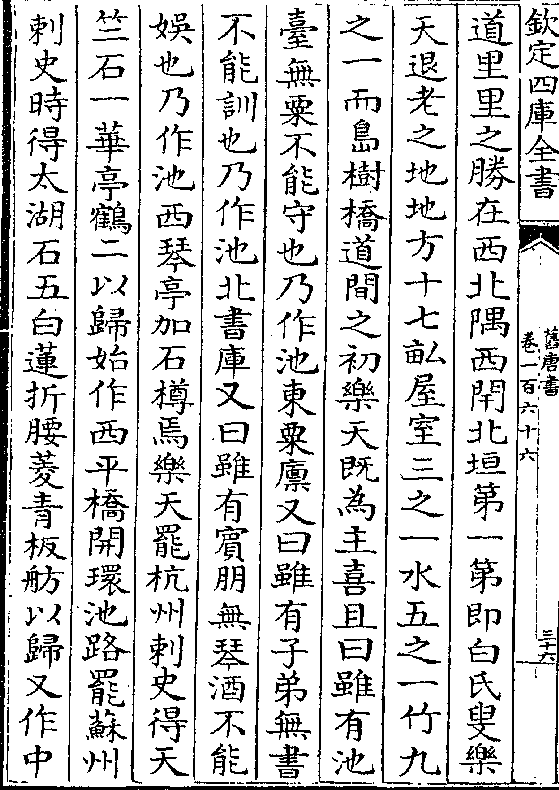 欽定四庫全書
舊唐書
卷一百六十六
三十六
道里里之勝在西北隅西閈北垣第一第即白氏叟樂
天退老之地地方十七畝屋室三之一水五之一竹九
之一而島樹橋道間之初樂天既為主喜且曰雖有池
臺無粟不能守也乃作池東粟廪又曰雖有子弟無書
不能訓也乃作池北書庫又曰雖有賓朋無琴酒不能
娯也乃作池西琴亭加石樽焉樂天罷杭州刺史得天
竺石一華亭鶴二以歸始作西平橋開環池路罷蘇州
刺史時得太湖石五白蓮折腰菱青板舫以歸又作中